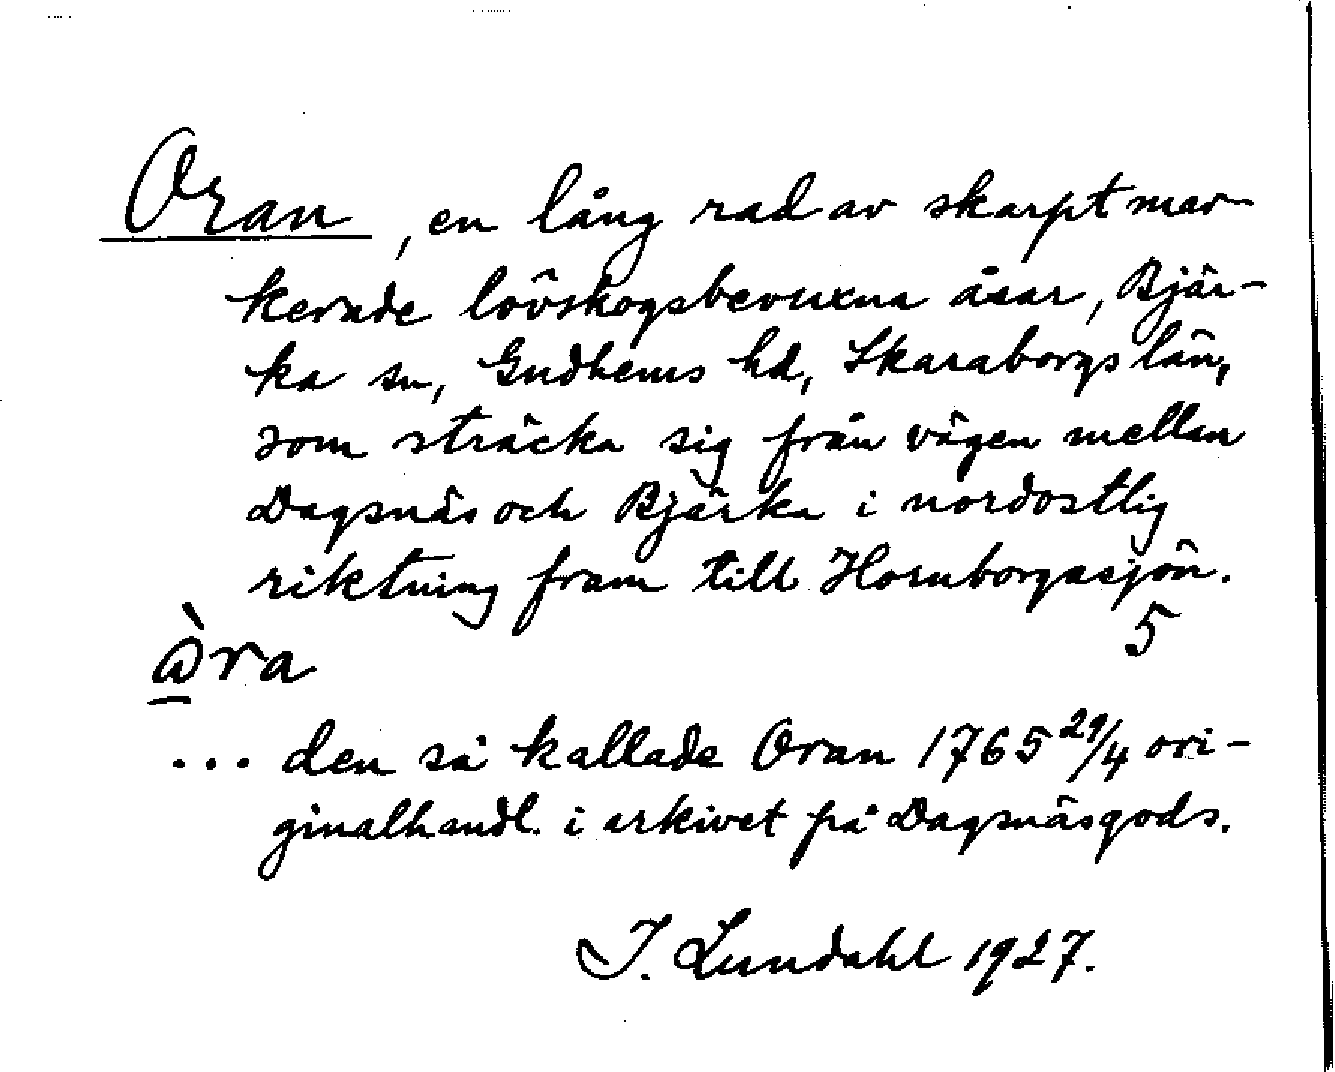 Oran, en lång rad av skarpt mar-
kerade lövskogsbevuxna åsar, Bjär-
ka sn, Gudhems hd, Skaraborgs län,
som sträcka sig från vägen mellan
Dagsnäs och Bjärka i nordostlig
riktning fram till Hornborgasjön.
5
òra
... den så kallade Oran 1765 29/4 ori-
ginalhandl. i arkivet på Dagsnäs gods.
I. Lundahl 1927.